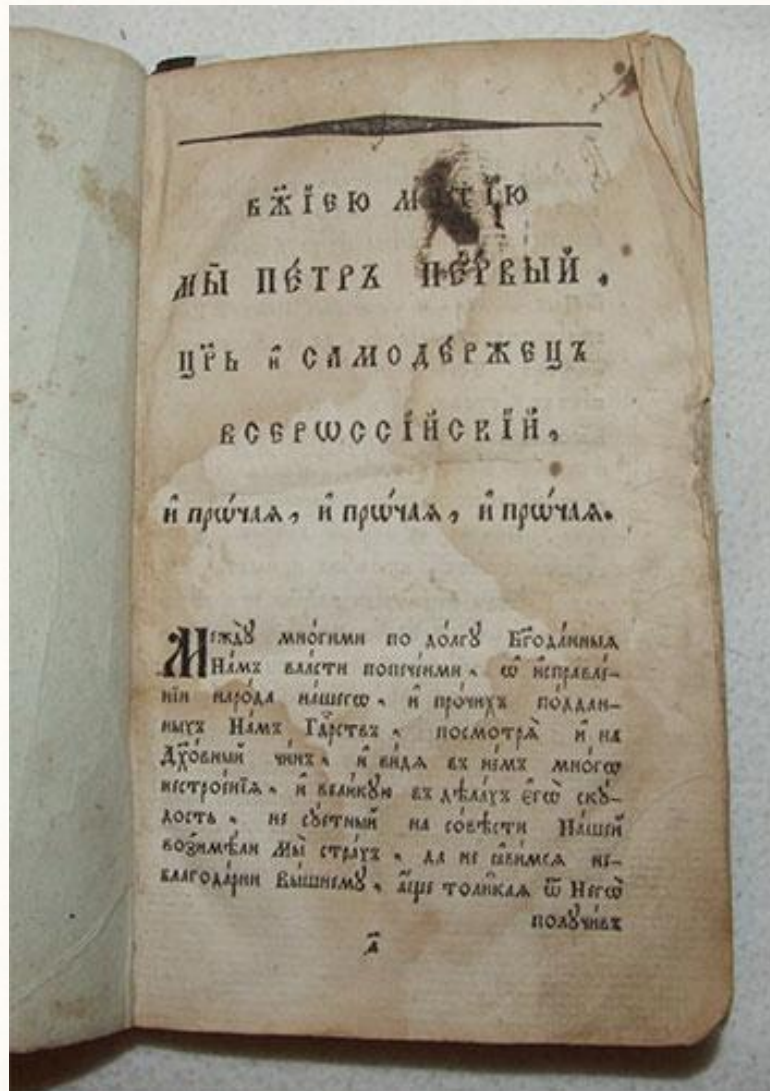 бж҃їею м
мы̀ пе́тръ пе́рвый,
цр҃ь и҆ самоде́ржецъ
всерѡссі́йскїй,
и҆ прѡ́чаѧ, и҆ прѡ́чаѧ, и҆ прѡ́чаѧ.
Междꙋ̀ мно́гими по до́лгꙋ Бг҃ода́нныѧ
На́мъ вла́сти попече́нїми, ѡ҆ и҆справле́-
нїи наро́да на́шегѡ, и҆ про́чихъ по́ддан-
ныхъ На́мъ Гд҃рствъ, посмотрѧ̀ и҆ на
Дх҃о́вный чи́нъ, и҆ ви́дѧ въ не́мъ мно́гѡ
нестрое́нїѧ, и҆ вели́кꙋю въ дѣ́лахъ є҆гѡ̀ скꙋ́-
дость, не сꙋ́етный на со́вѣсти На́шей
возимѣ́ли Мы̀ стра́хъ, да не ꙗ҆ви́мсѧ не-
благода́рни Вы́шнемꙋ, а҆́ще толи́каѧ ѿ Негѡ̀
полꙋчи́въ
а҃